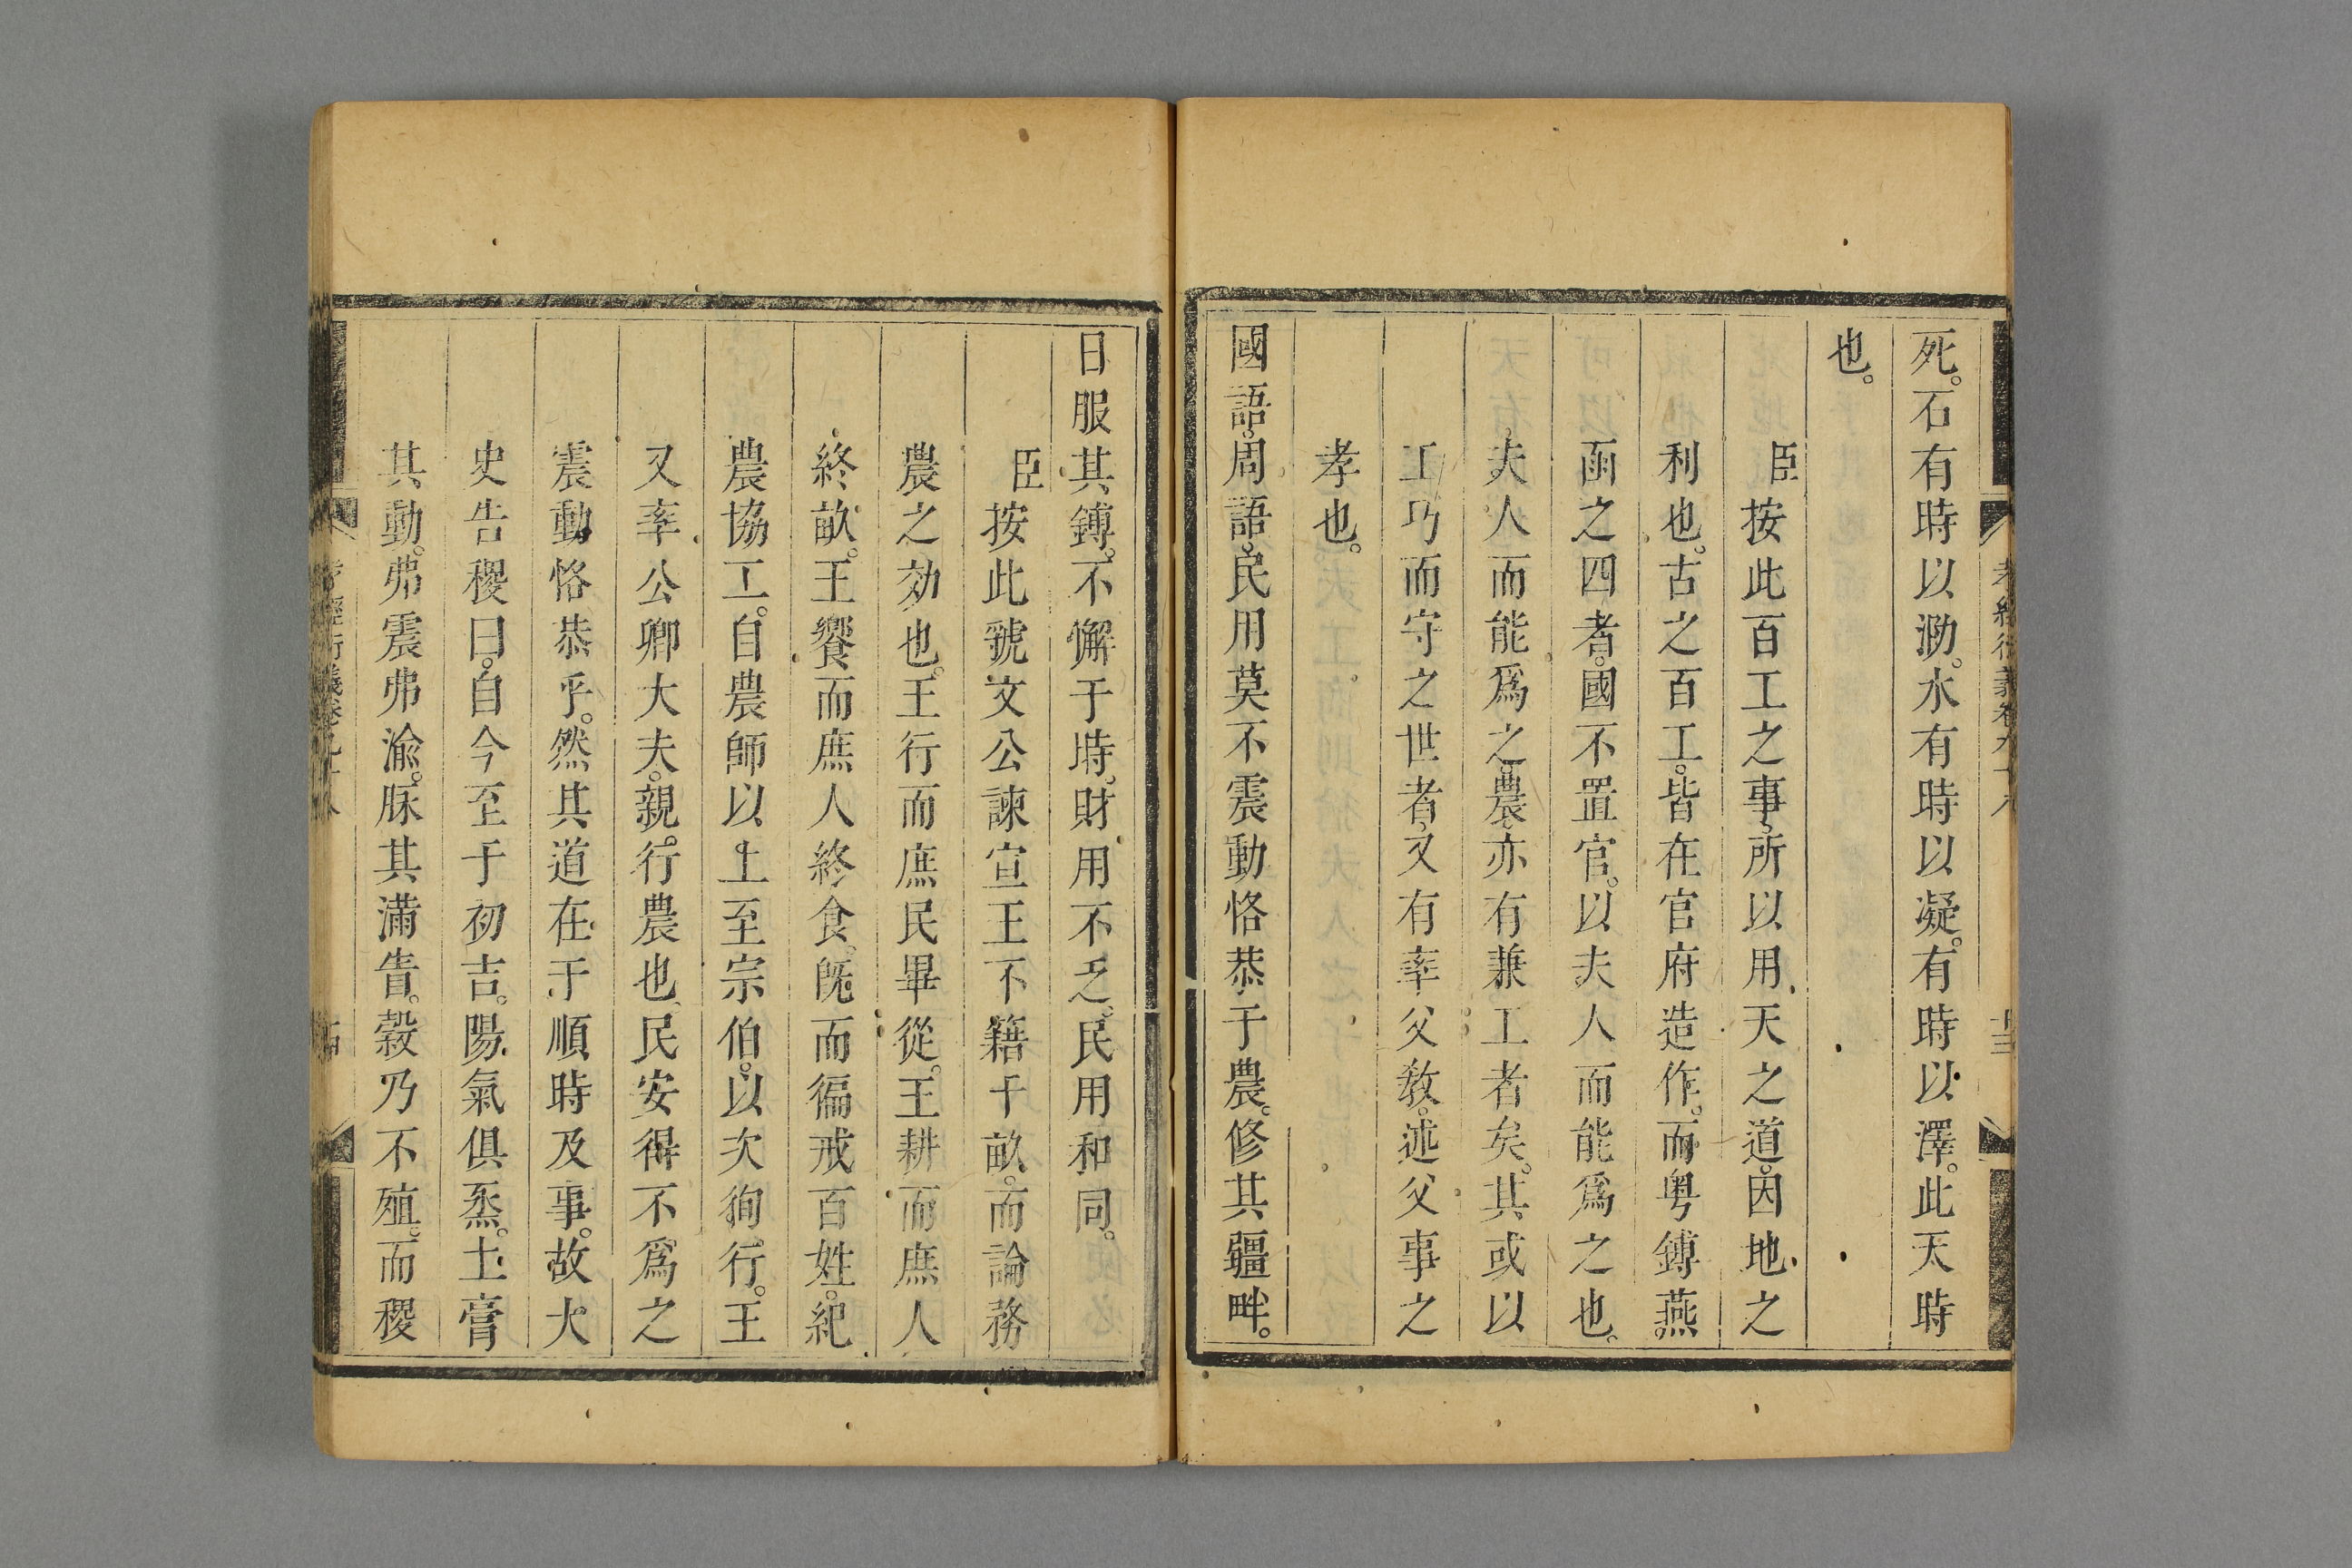 死。石有時以泐。水有時以凝。有時以澤。此天時
也。
臣按此百工之事。所以用天之道。因地之
利也。古之百工。皆在官府造作。而粵鎛燕。
函之四者。國不置官。以夫人而能爲之也。
夫人而能爲之。農亦有兼工者矣。其或以
工巧而守之世者。又有率父教。述父事之
孝也。
國語。周語。民用莫不震動恪恭于農。修其疆畔。
日服其鎛。不懈于時。財用不乏。民用和同。
臣按此虢文公諫宣王不籍千畝。而論務
農之効也。王行而庶民畢從。王耕而庶人
終畝。王饗而庶人終食。旣而徧戒百姓。紀
農協工。自農師以上至宗伯。以次徇行。王
又率公卿大夫。親行農也。民安得不爲之
震動恪恭乎。然其道在于順時及事。故太
史告稷曰。自今至于初吉。陽氣俱烝。土膏
其動。弗震弗渝。脉其滿眚。穀乃不殖。而稷